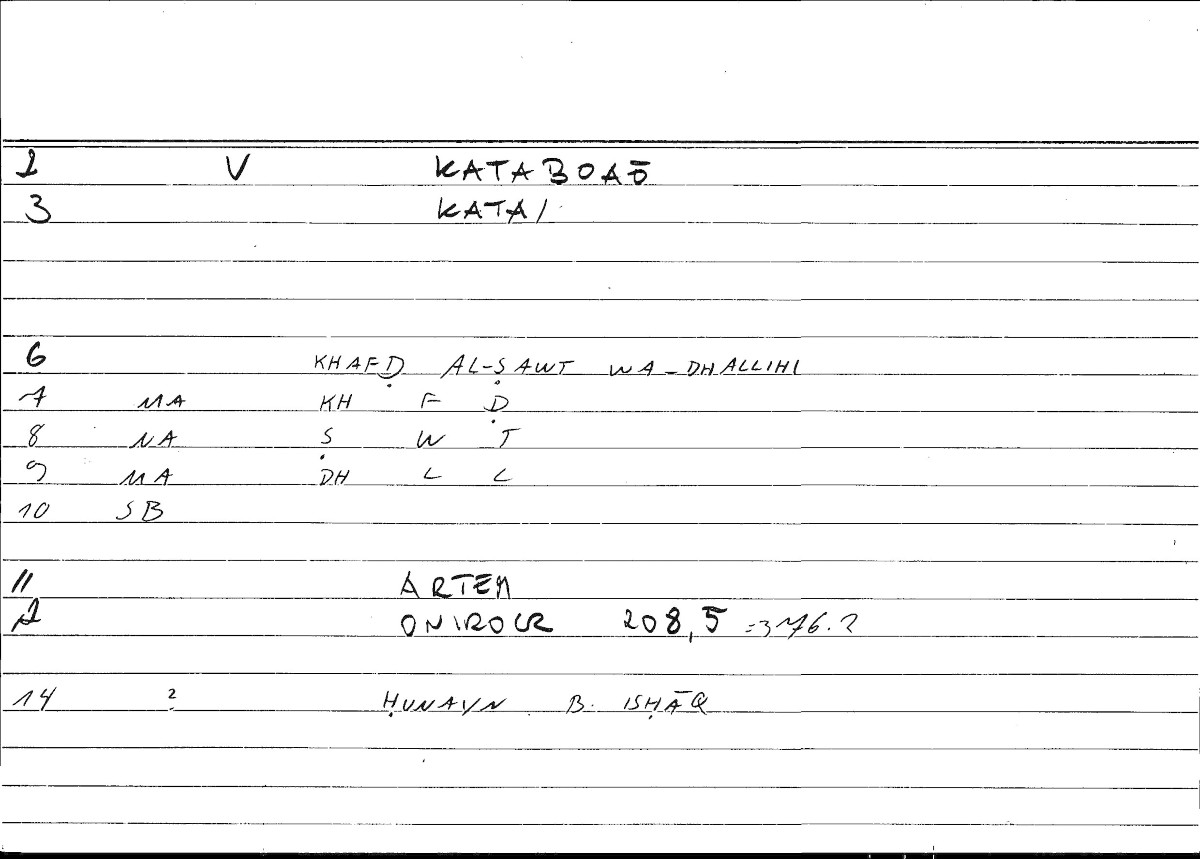 2 V KATABOAŌ
3 KATAI
6 KHAFḌ AL-ṢAWT WA-DHALLIHI
7 MA KH F Ḍ
8 NA Ṣ W T
9 MA DH L L
10 SB
11 ARTEM
2 ONIROCR 208,5 =376.2
14 2 ḤUNAYN B. ISḤĀQ